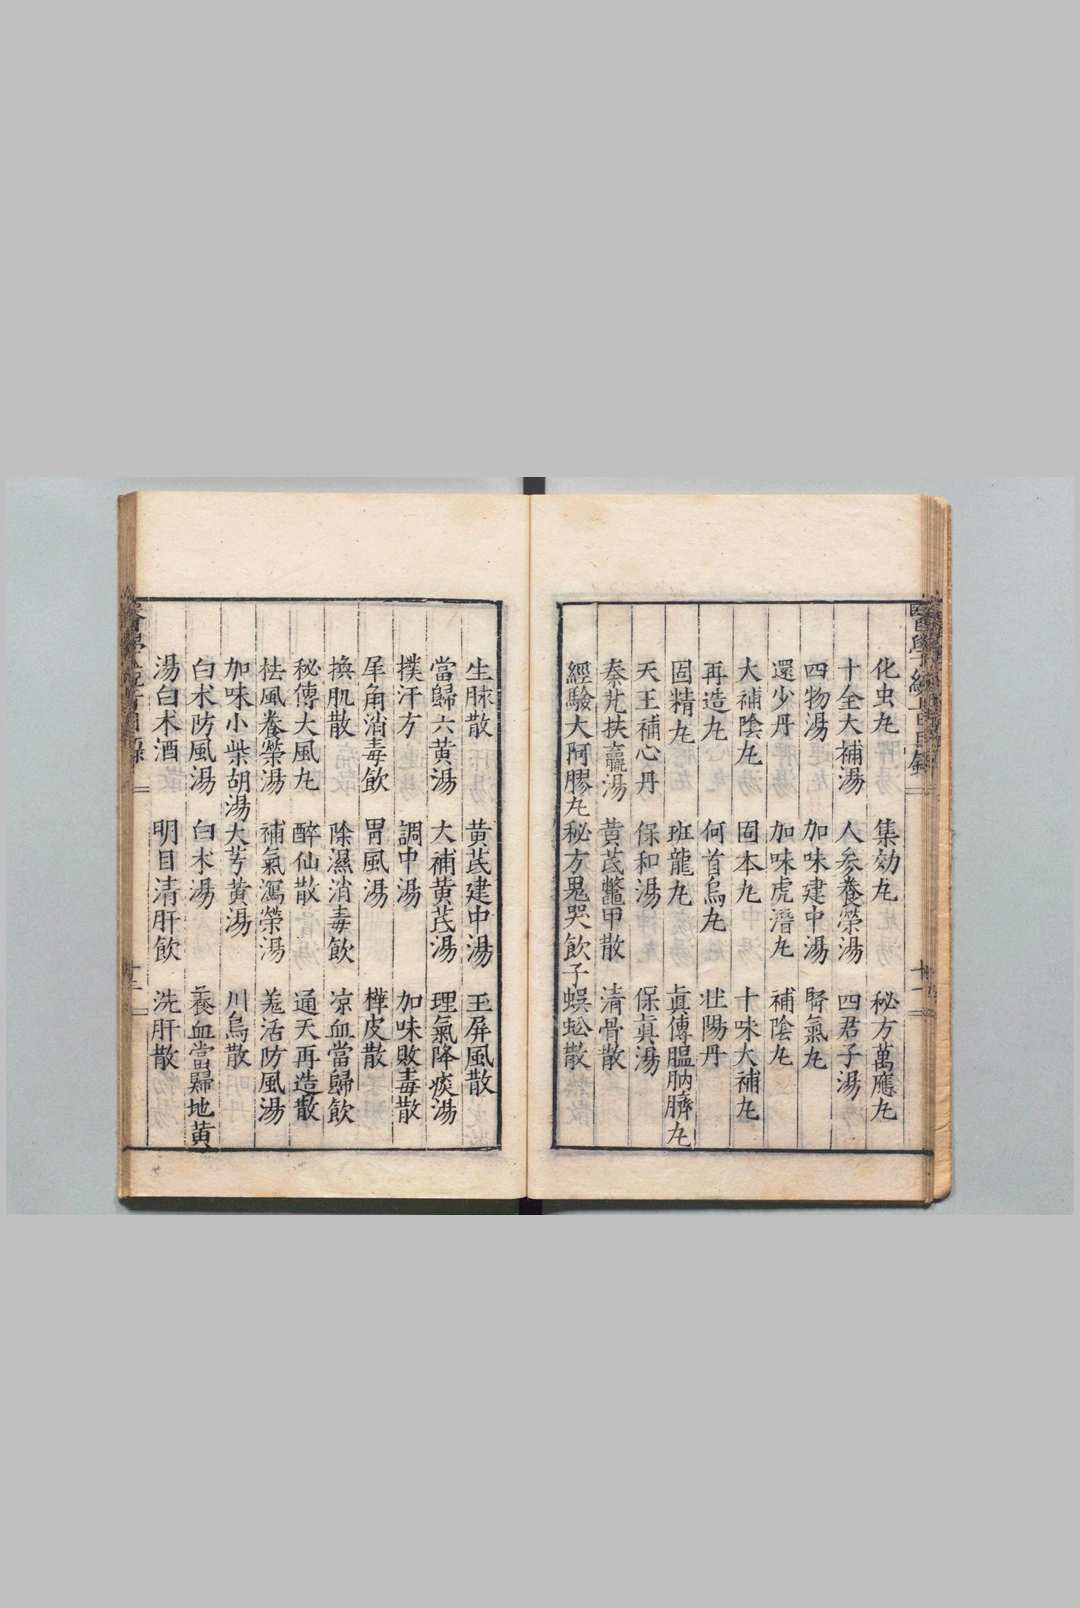 化虫丸 集効丸 秘方萬應丸
十全大補湯 人参養榮湯 四君子湯
四物湯 加味建中湯 腎氣丸
還少丹 加味虎潛丸 補陰丸
大補陰丸 固本丸 十味大補丸
再造丸 何首烏丸 壮陽丹
固精丸 班龍丸 眞傳膃肭臍丸
天王補心丹 保和湯 保眞湯
秦艽扶羸湯 黄芪鱉甲散 清骨散
經驗大阿膠丸 秘方鬼哭飲子 蜈蚣散
生脉散 黄芪建中湯 玉屏風散
當歸六黄湯 大補黄芪湯 理氣降痰湯
撲汗方 調中湯 加味敗毒散
犀角消毒飲 胃風湯 樺皮散
換肌散 除濕消毒飲 凉血當歸飲
秘傳大風丸 醉仙散 通天再造散
祛風養榮湯 補氣瀉榮湯 羗活防風湯
加味小柴胡湯 大芎黄湯 川烏散
白术防風湯 白术湯 養血當歸地黄
湯白术酒 明目清肝飲 洗肝散